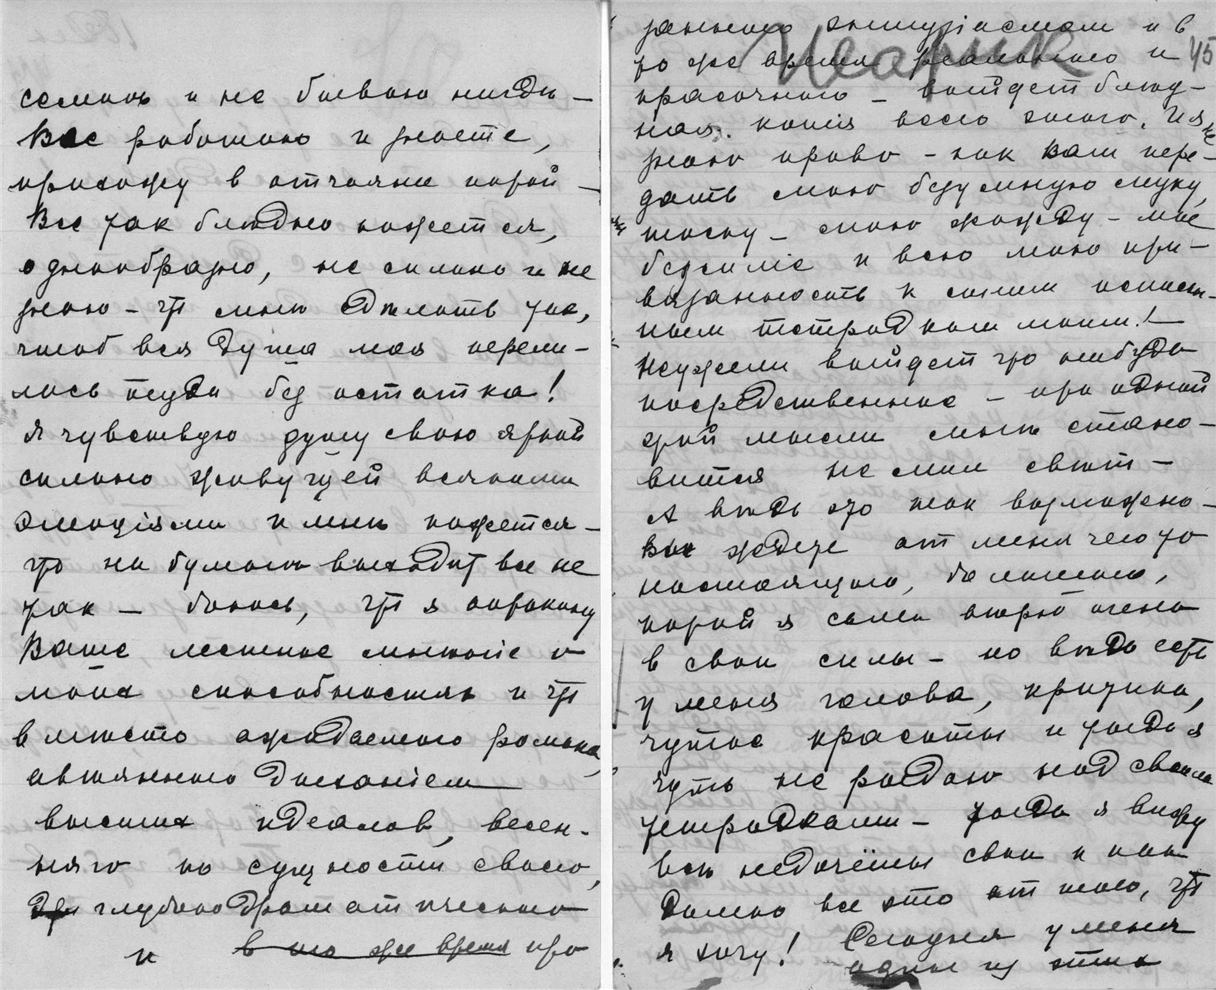 семьѣ и не бываю нигдѣ –
Все работаю и знаете,
прихожу в отчаянiе порой –
Все так блѣдно кажется,
однообразно, не сильно и не
знаю – что мнѣ дѣлать так,
чтоб вся душа моя перели-
лась туда без остатка!
Я чувствую душу свою яркой
сильно живущей всякими
эмоцiями и мнѣ кажется –
что на бумагѣ выходит все не
так – боюсь, что я опрокину
Ваше лестное мнѣнiе о
моих способностях и что
вмѣсто ожидаемого романа,
овѣянного дыханiем
высших идеалов, весен-
няго по сущности своей,
глубоко драматическаго
и в то же время про
45
Цеарик
занного энтузiасмом и в
то же время реального и
красочного – выйдет блѣд-
ная копiя всего этого. И я не
знаю право – как Вам пере-
дать мою безумную муку,
тоску – мою жажду – мое
безсилiе и всю мою при-
вязанность к моим исписан-
ным тетрадкам моим! –
Неужели выйдет что нибудь
посредственное – при одной
этой мысли мнѣ стано-
вится не мил свѣт –
А вѣдь это так возможно –
Вы ждете от меня чего то
настоящаго, большого,
порой я сама вѣрю очень
в свои силы – но вѣдь есть
у меня голова, критика,
чутье красоты и тогда я
чуть не рыдаю над своими
тетрадками – тогда я вижу
всѣ недочёты свои и как
далеко все это от того, что
я хочу! Сегодня у меня
один из этих